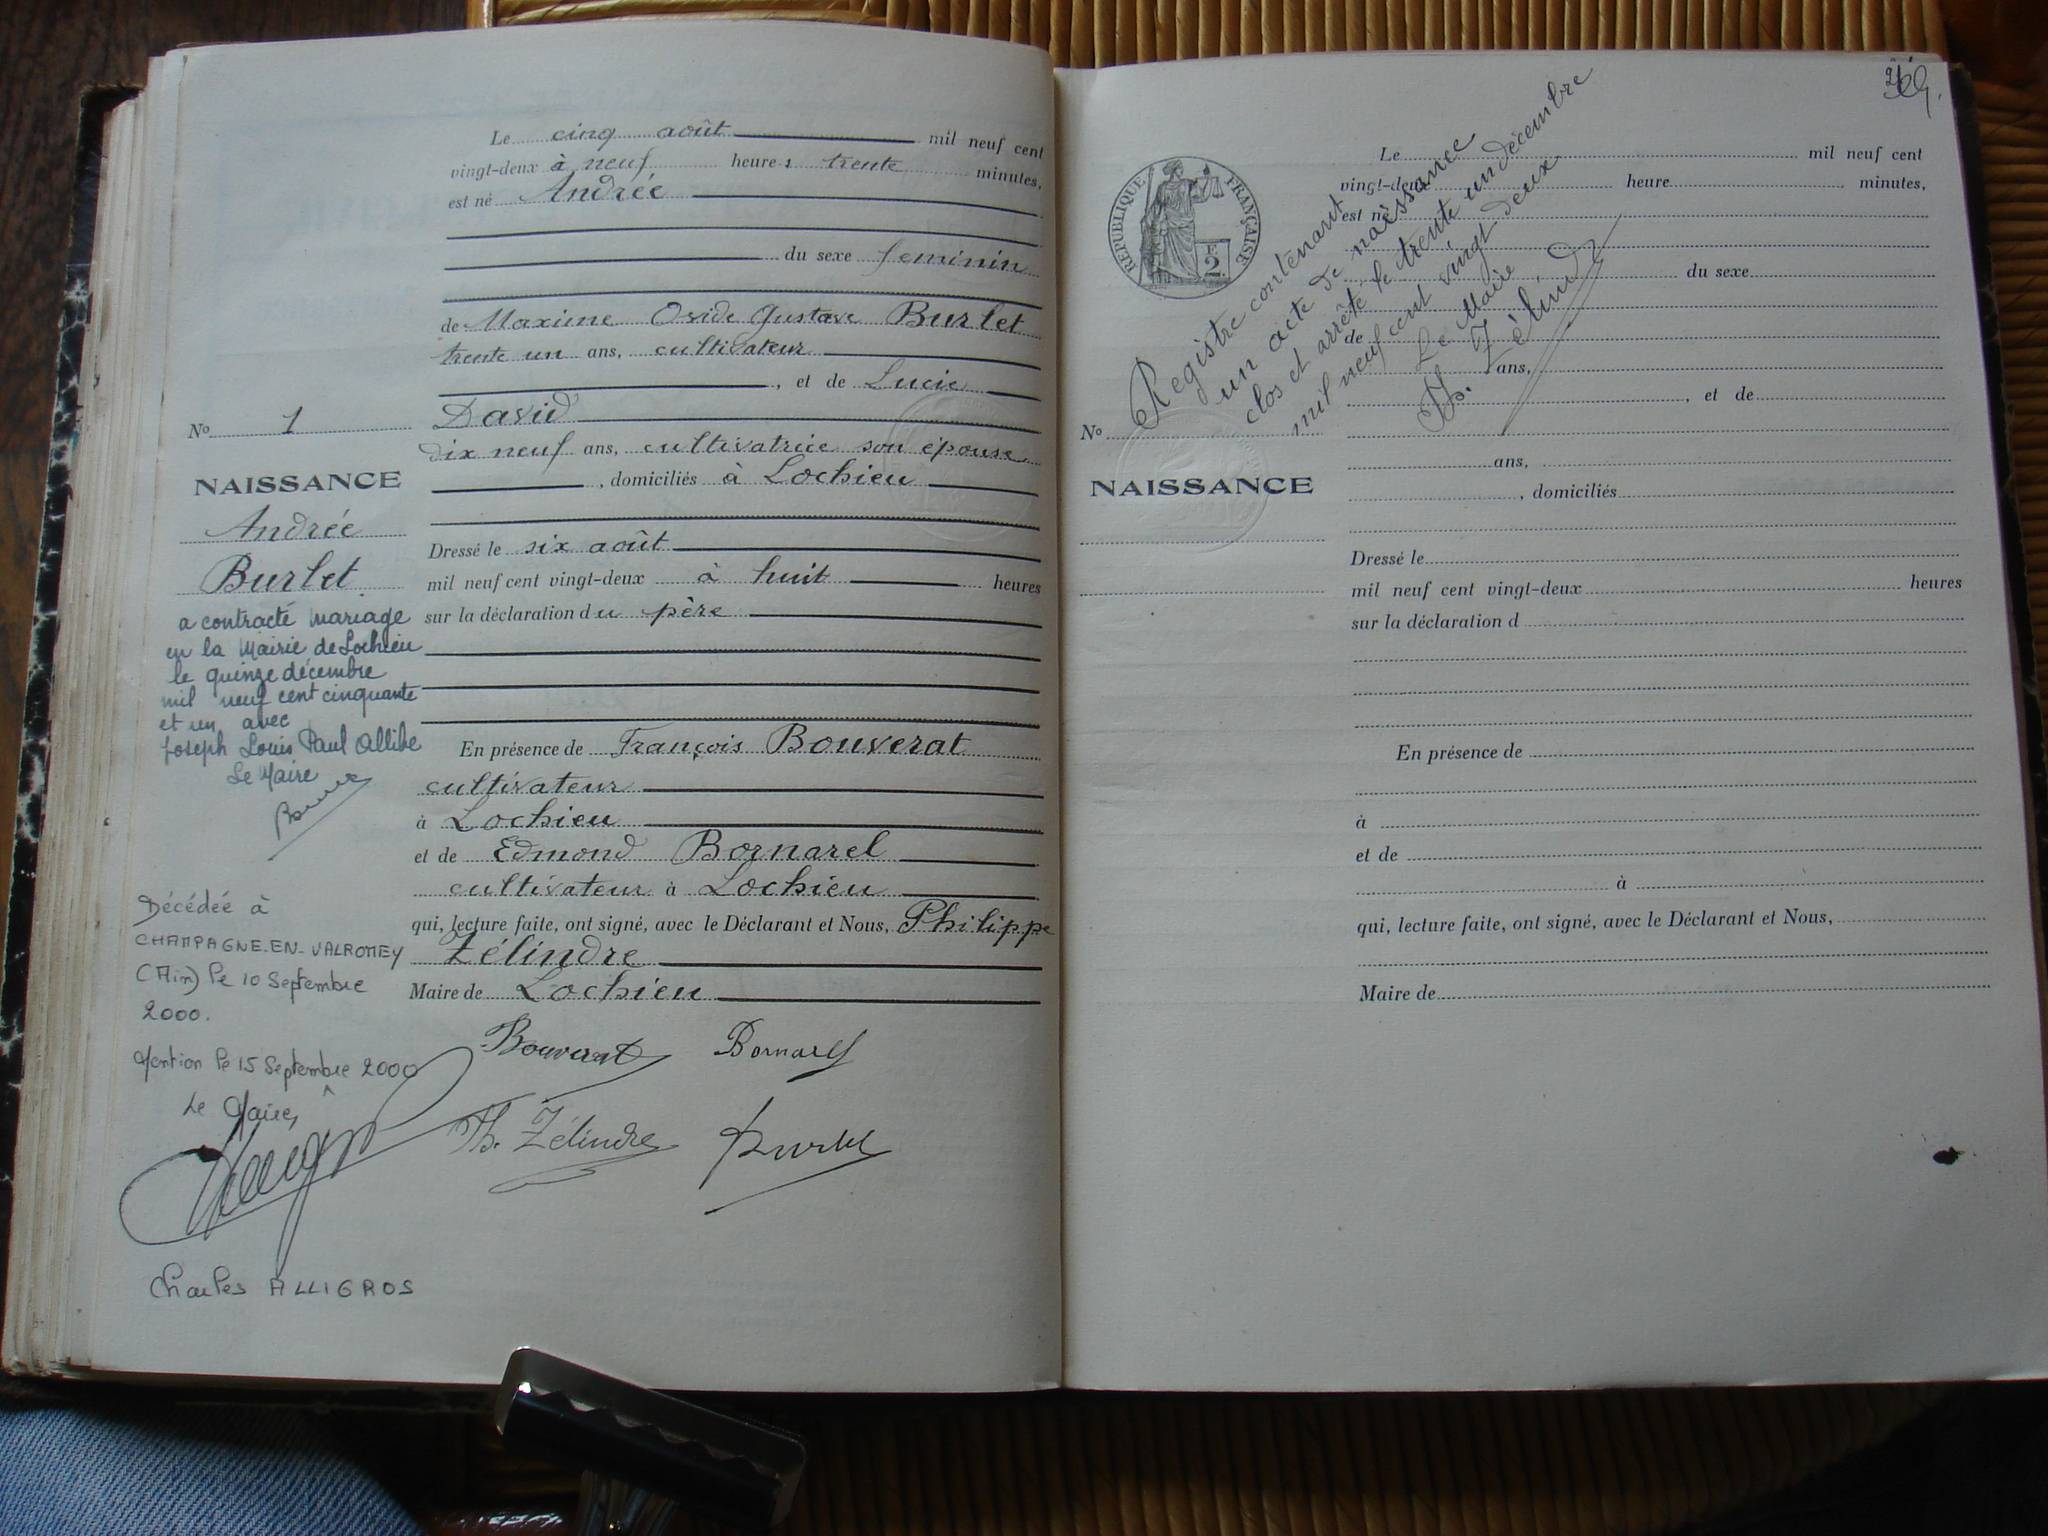 Le cinq août mil neuf cent
vingt-deux à neuf heures trente minutes,
est né Andrée
du sexe feminin
de Maxime Ovide Gustave Burlet
trente un ans, cultivateur
, et de Lucie
David
dix neuf ans, cultivatrice son épouse
, domiciliés à Lochieu
Dressé le six août
mil neuf cent vingt-deux à huit heures
sur la déclaration du père
En présence de François Bouverat
cultivateur
à Lochieu
et de Edmond Bornarel
cultivateur à Lochieu
qui, lecture faite, ont signé, avec le Déclarant et Nous, Philippe
Zélindre
Maire de Lochieu
Bouverat Bornarel
Ph. Zélindre Burlet
No 1
NAISSANCE
Andrée
Burlet
a contracté mariage
en la Mairie de Lochieu
le quinze décembre
mil neuf cent cinquante
et un avec
Joseph Louis Paul Allibe
Le Maire
Décédée à
CHAMPAGNE-EN-VALROMEY
(Ain) le 10 Septembre
2000.
Mention le 15 Septembre 2000
Le Maire,
Charles ALLIGROS
RÉPUBLIQUE FRANÇAISE
2
Registre contenant
un acte de naissance
clos et arrêté le trente un décembre
mil neuf cent vingt deux
Le Maire
Ph. Zélindre
Le mil neuf cent
vingt-deux heure minutes,
est né
du sexe
de
ans,
, et de
No
ans,
NAISSANCE
, domiciliés
Dressé le
mil neuf cent vingt-deux heures
sur la déclaration d
En présence de
à
et de
à
qui, lecture faite, ont signé, avec le Déclarant et Nous,
Maire de